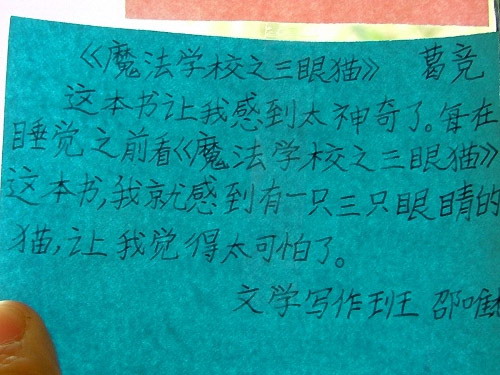 《魔法学校之三眼猫》 葛竞
这本书让我感到太神奇了。每在
睡觉之前看《魔法学校之三眼猫》
这本书,我就感到有一只三只眼睛的
猫,让我觉得太可怕了。
文学写作班 邵唯